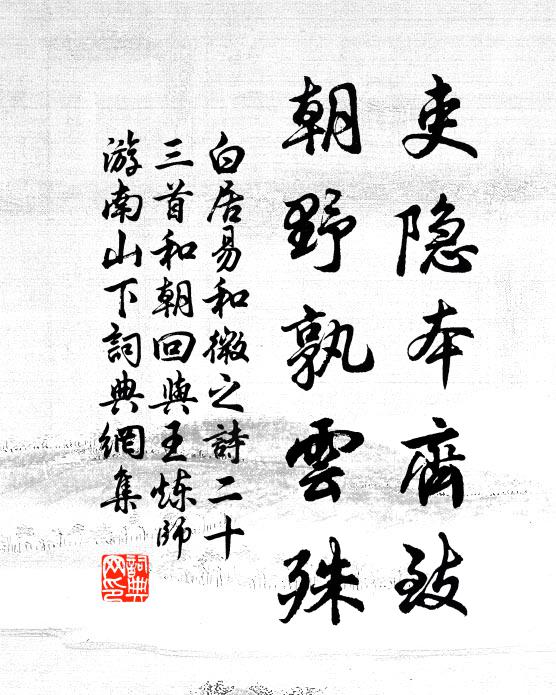 吏隐本齊致
朝野孰雲殊
白居易和微之詩二十
三首和朝回與王炼師
游南山下詞典網集
詞典網印